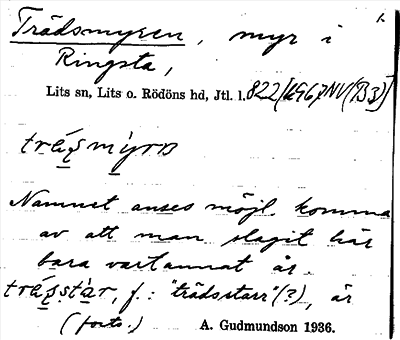 1.
Trädsmyren, myr i
Ringsta,
Lits sn, Lits o. Rödöns hd, Jtl. l. 822/496, NV(B3)
Namnet anses möjl. komma
av att man slagit här
bara vartannat år.
f.: "trädsstarr"(?), är
(forts.)
A. Gudmundson 1936.